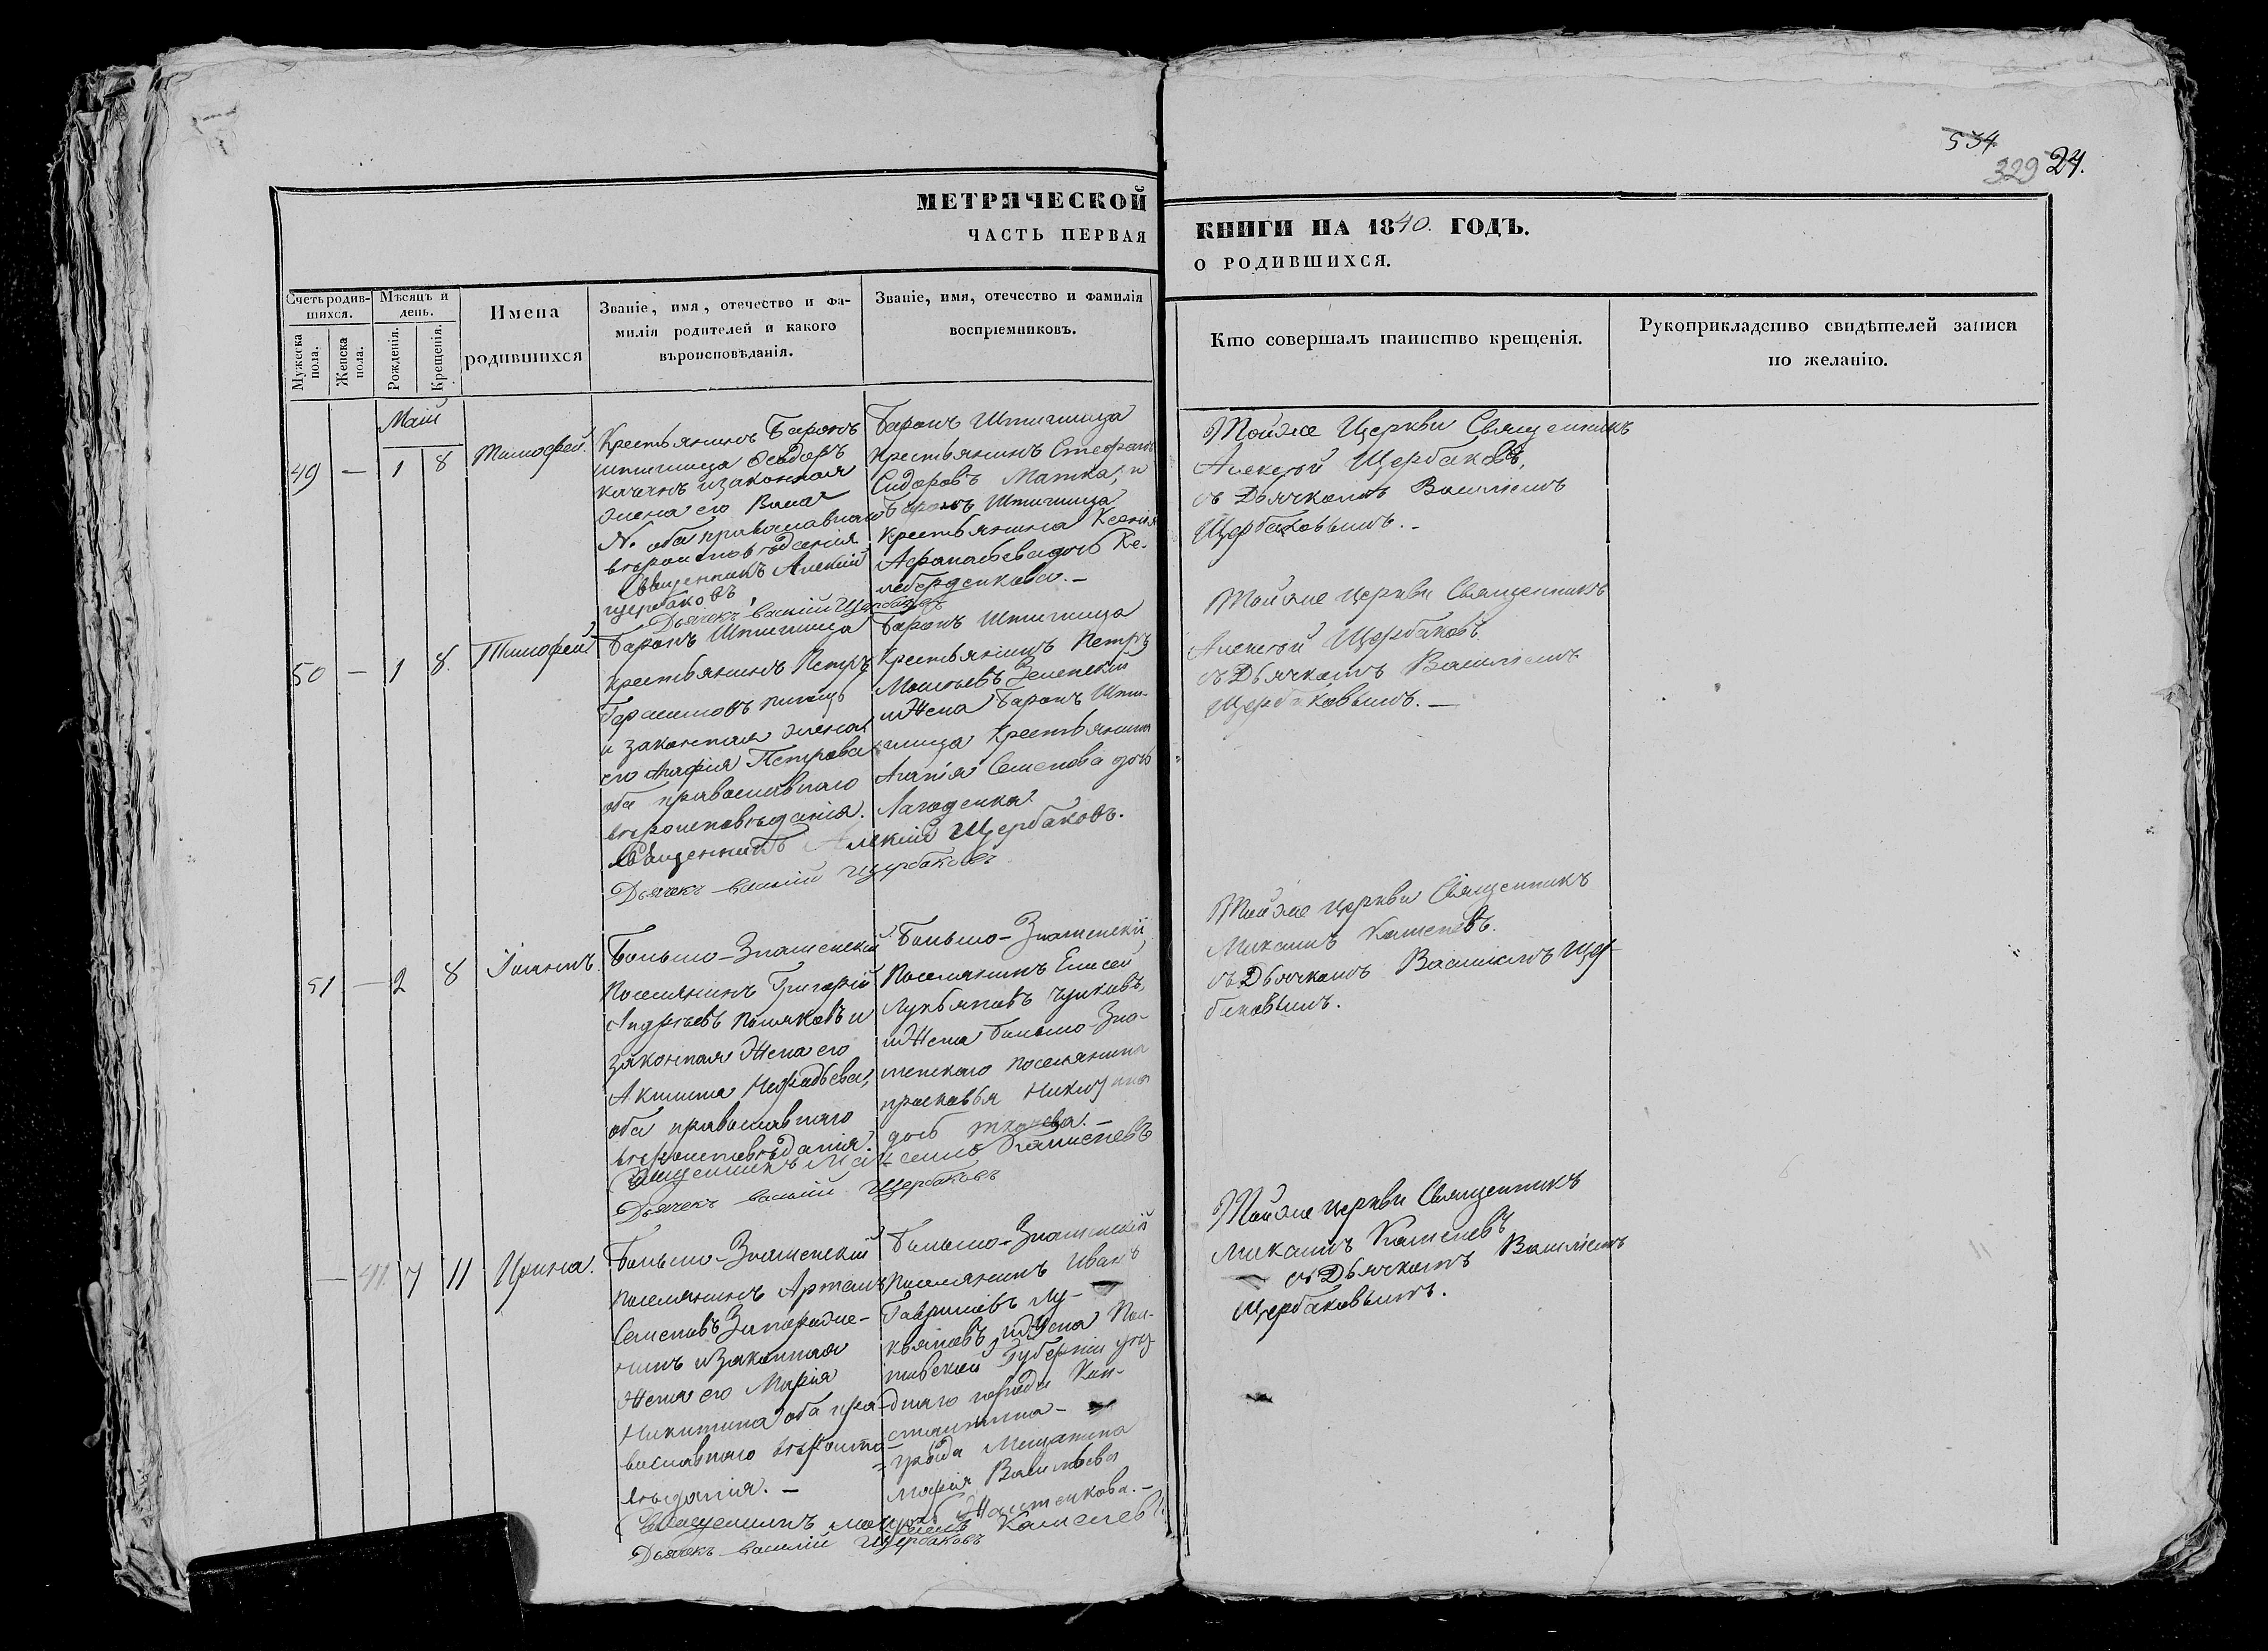 534
329 24.
МЕТРИЧЕСКОЙ
ЧАСТЬ ПЕРВАЯ
КНИГИ НА 1840. ГОДЪ.
О РОДИВШИХСЯ.
Счетъ родив-
шихся.
Мужеска
пола.
Женска
пола.
Мѣсяцъ и
день.
Рожденія.
Крещенія.
Имена
родившихся
Званіе, имя, отечество и фа-
милія родителей и какого
вѣроисповѣданія.
Званіе, имя, отечество и фамилія
воспріемниковъ.
Кто совершалъ таинство крещенія.
Рукоприкладство свидѣтелей записи
по желанію.
Маій
49 — 1 8 Тимофей.
Крестьянинъ Баронъ
штиглица
и законная
жена его
N. оба православнаго
вѣроисповѣданія
Священникъ Алексій
Щербаковъ
Дьячекъ Василій Щербаковъ
Баронъ Штиглица
крестьянинъ Стефанъ
Сидоровъ Матка, и
Баронъ Штиглица
Крестьянина Ксенія
дочь Ке-
леберденкова. —
Тойже Церкви Священникъ
Алексѣй Щербаковъ,
съ Дьячкомъ Василіемъ
Щербаковымъ. —
50 — 1 8. Тимофей
Баронъ Штиглица
крестьянинъ Петръ
Герасимовъ
и законная жена
его Агафія Петрова
оба православнаго
вѣроисповѣданія.
Священникъ Алексій Щербаковъ.
Дьячекъ Василій Щербаковъ
Баронъ Штиглица
крестьянинъ Петръ
Моисѣевъ Зеленскій
и Жена Баронъ Шти-
глица Крестьянина
Агапія Семенова дочь
Лагоденка
Тойже церкви Священникъ
Алексѣй Щербаковъ
съ Дьячкомъ Василіемъ
Щербаковымъ. —
51 — 2 8 Іоаннъ.
Больше-Знаменскій
Поселянинъ Григорій
Андрѣевъ Поляковъ и
законная Жена его
Акилина
оба православнаго
вѣроисповѣданія.
Священникъ Максимъ Каменевъ
Дьячекъ Василій Щербаковъ
Больше-Знаменскій
Поселянинъ Елисей
Лукьяновъ Чулковъ,
и Жена Больше-Зна-
менскаго поселянина
Прасковья
дочь —
Тойже церкви Священникъ
Максимъ Каменевъ.
съ Дьячкомъ Василіемъ Щер-
баковымъ.
— 41 7 11 Ирина.
Больше-Знаменскій
поселянинъ Артемъ
Семеновъ Запороже-
нинъ и Законная
Жена его Марія
Никитина оба пра-
вославнаго вѣроиспо-
вѣданія. —
Священникъ Максимъ Каменевъ
Дьячекъ Василій Щербаковъ
Больше-Знаменскій
поселянинъ Иванъ
Гавриловъ Лу-
кьяновъ и Жена Пол-
тавской Губерніи уѣз-
днаго города Кон-
стантино-
града Мещанина
Марія Васильева
дочь
Тойже церкви Священникъ
Максимъ Каменевъ
съ Дьячкомъ Василіемъ
Щербаковымъ.